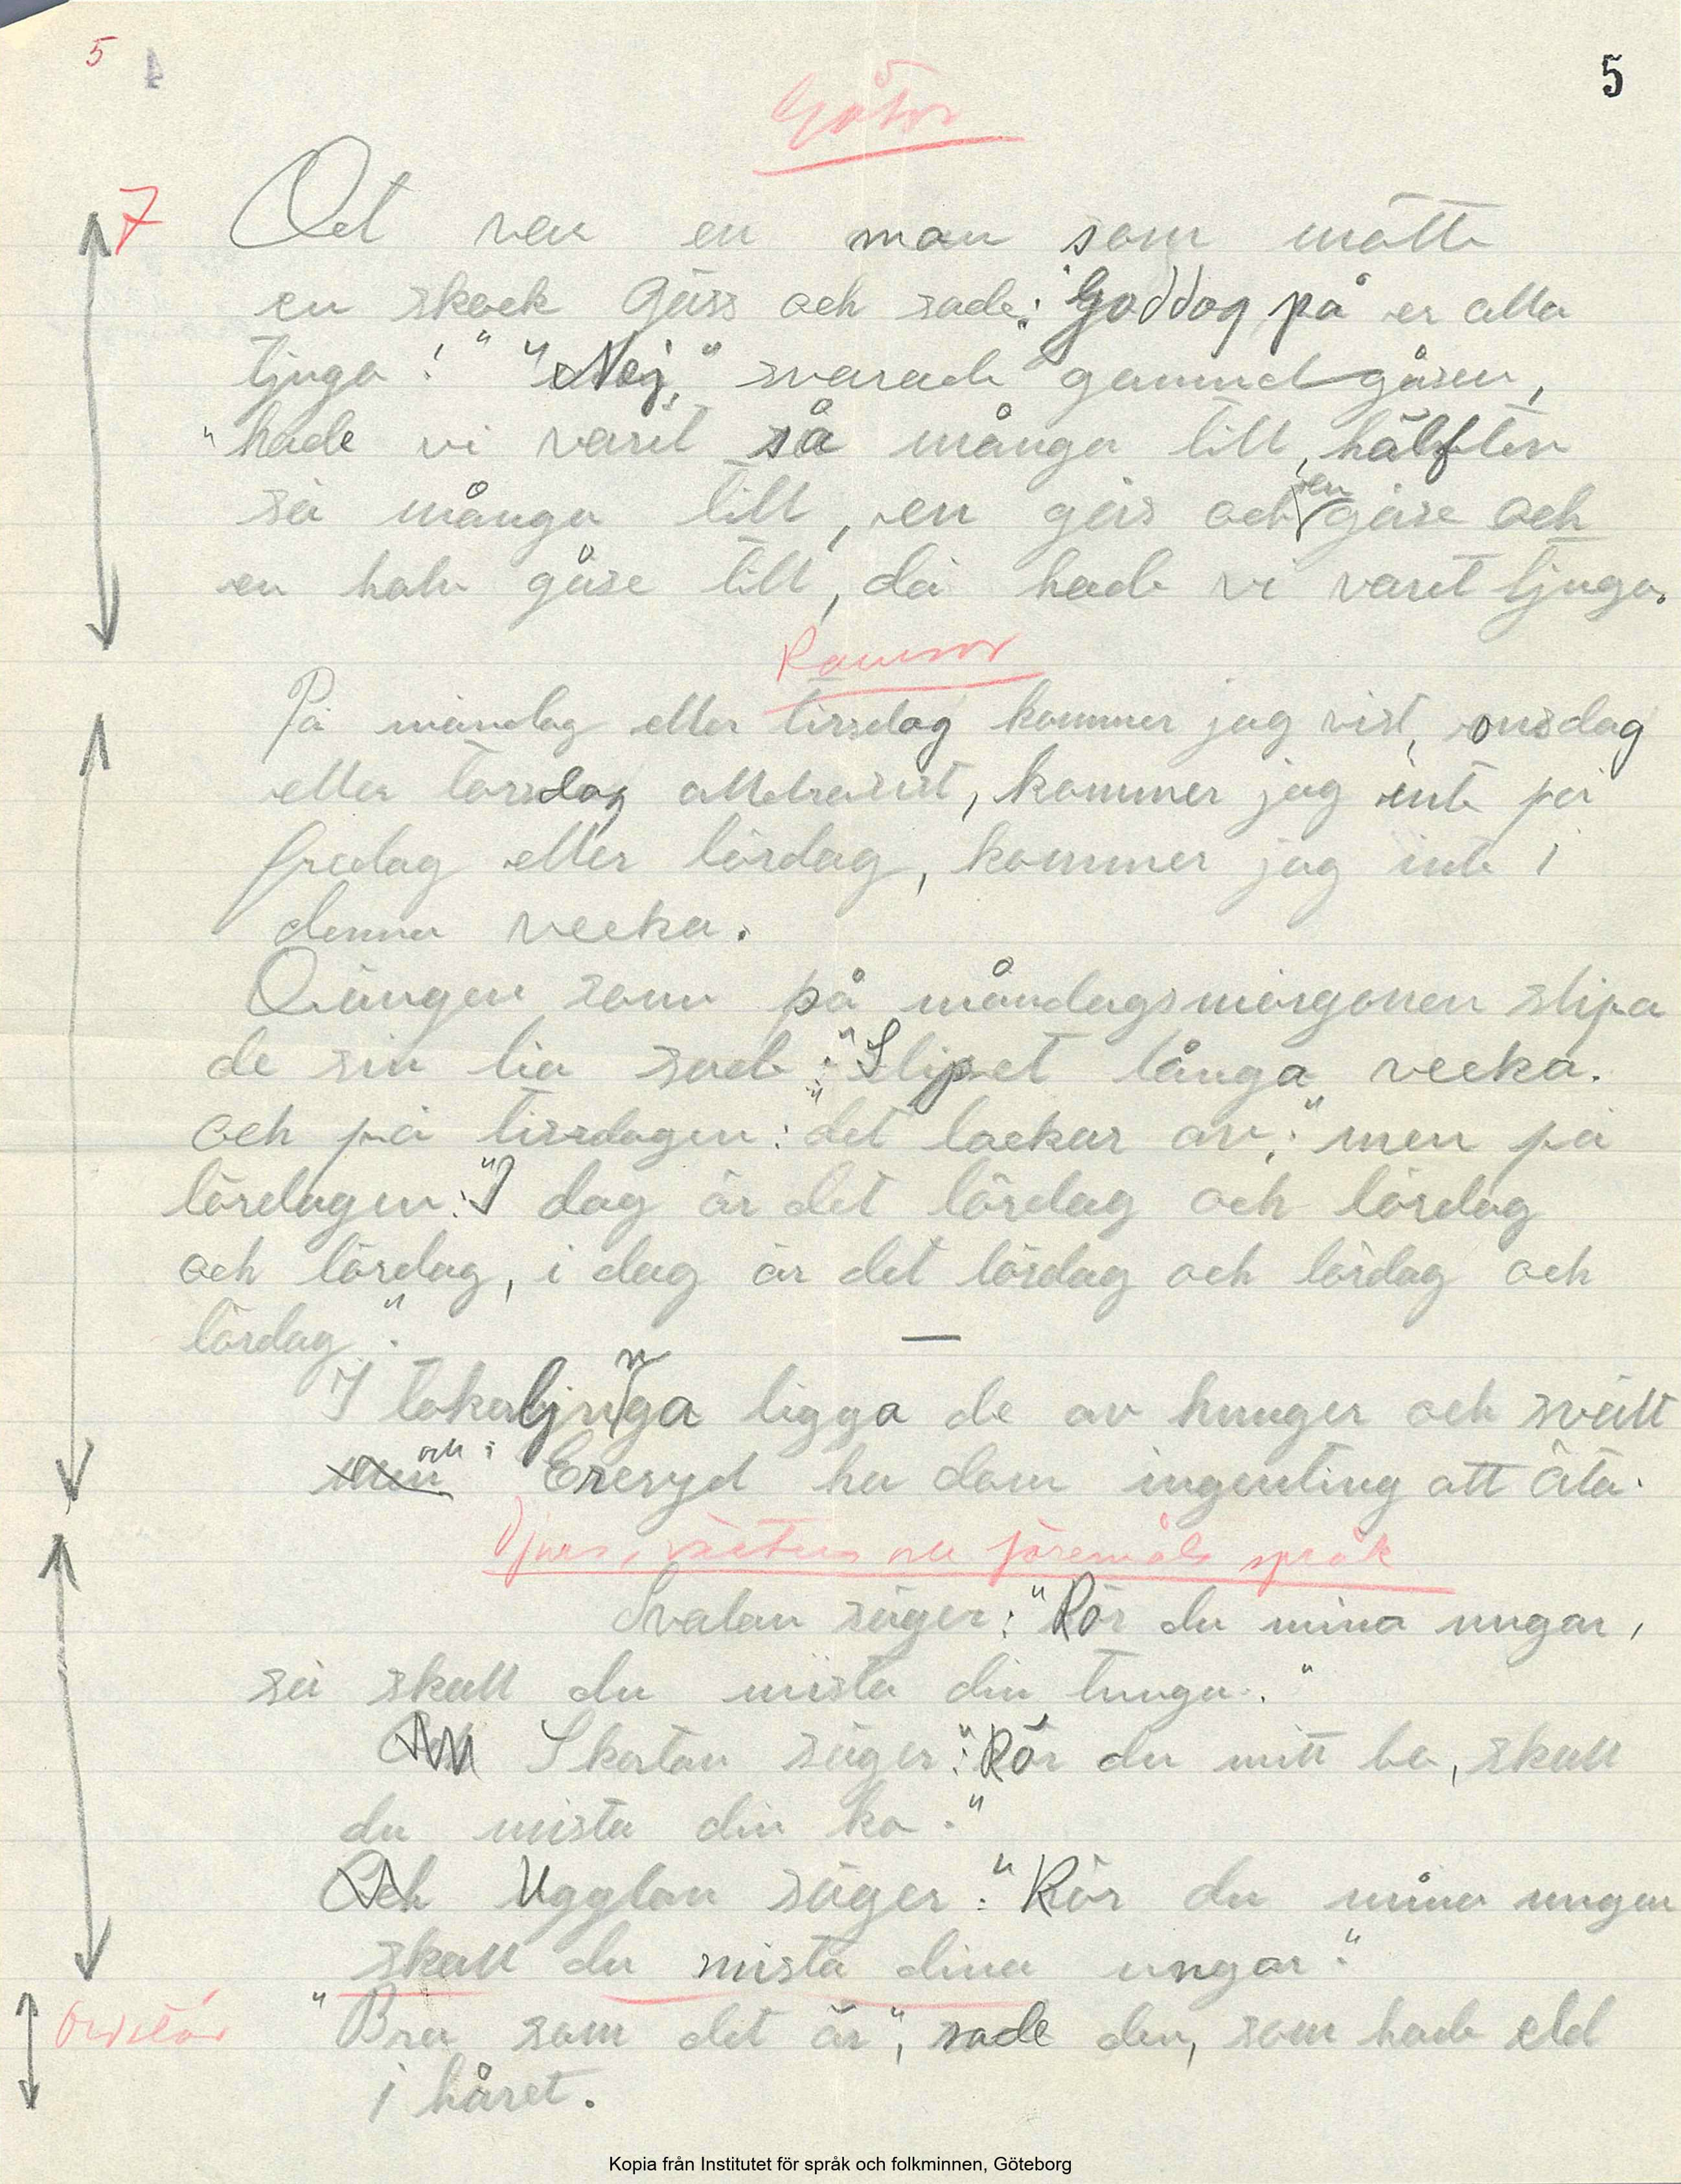 5
4
5
Gåtor
7
Det var en man som mötte
en skock gäss och sade: "Goddag på er alla
tjugo!" "Nej," svarade gammelgåsen,
"hade vi varit så många till, hälften
så många till, en gås och en gåse och
en halv gåse till, då hade vi varit tjugo.
Ramsor
På måndag eller tissdag kommer jag vist, onsdag
eller torsdag alldrasist, kommer jag inte på
fredag eller lördag, kommer jag inte i
denna vecka.
Drängen som på måndagsmorgonen slipa
de sin lia sade: "Slipet långa vecka.
och på tissdagen: "det lackar av;" men på
lördagen: "I dag är det lördag och lördag
och lördag, i dag är det lördag och lördag och
lördag".
—
I tokaljunga ligga de av hunger och svält
och i Eresryd ha dom ingenting att äta.
Djurs, växters och föremåls språk
Svalan säger: "Rör du mina ungar,
så skall du mista din tunga."
Och Skatan säger: "Rör du mitt bo, skall
du mista din ko."
Och Ugglan säger: "Rör du mina ungar
skall du mista dina ungar."
Ordstäv
"Bra som det är", sade den, som hade eld
i håret.
Kopia från Institutet för språk och folkminnen, Göteborg